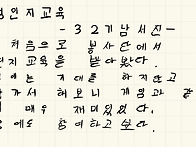 성인지교육
-32기남서진-
처음으로 봉사단에서
인지 교육을 받아봤다.
에는 기대를 하지않고
가서 해보니 게임과 같
매우 재미있었다.
에도 참여하고 싶다.